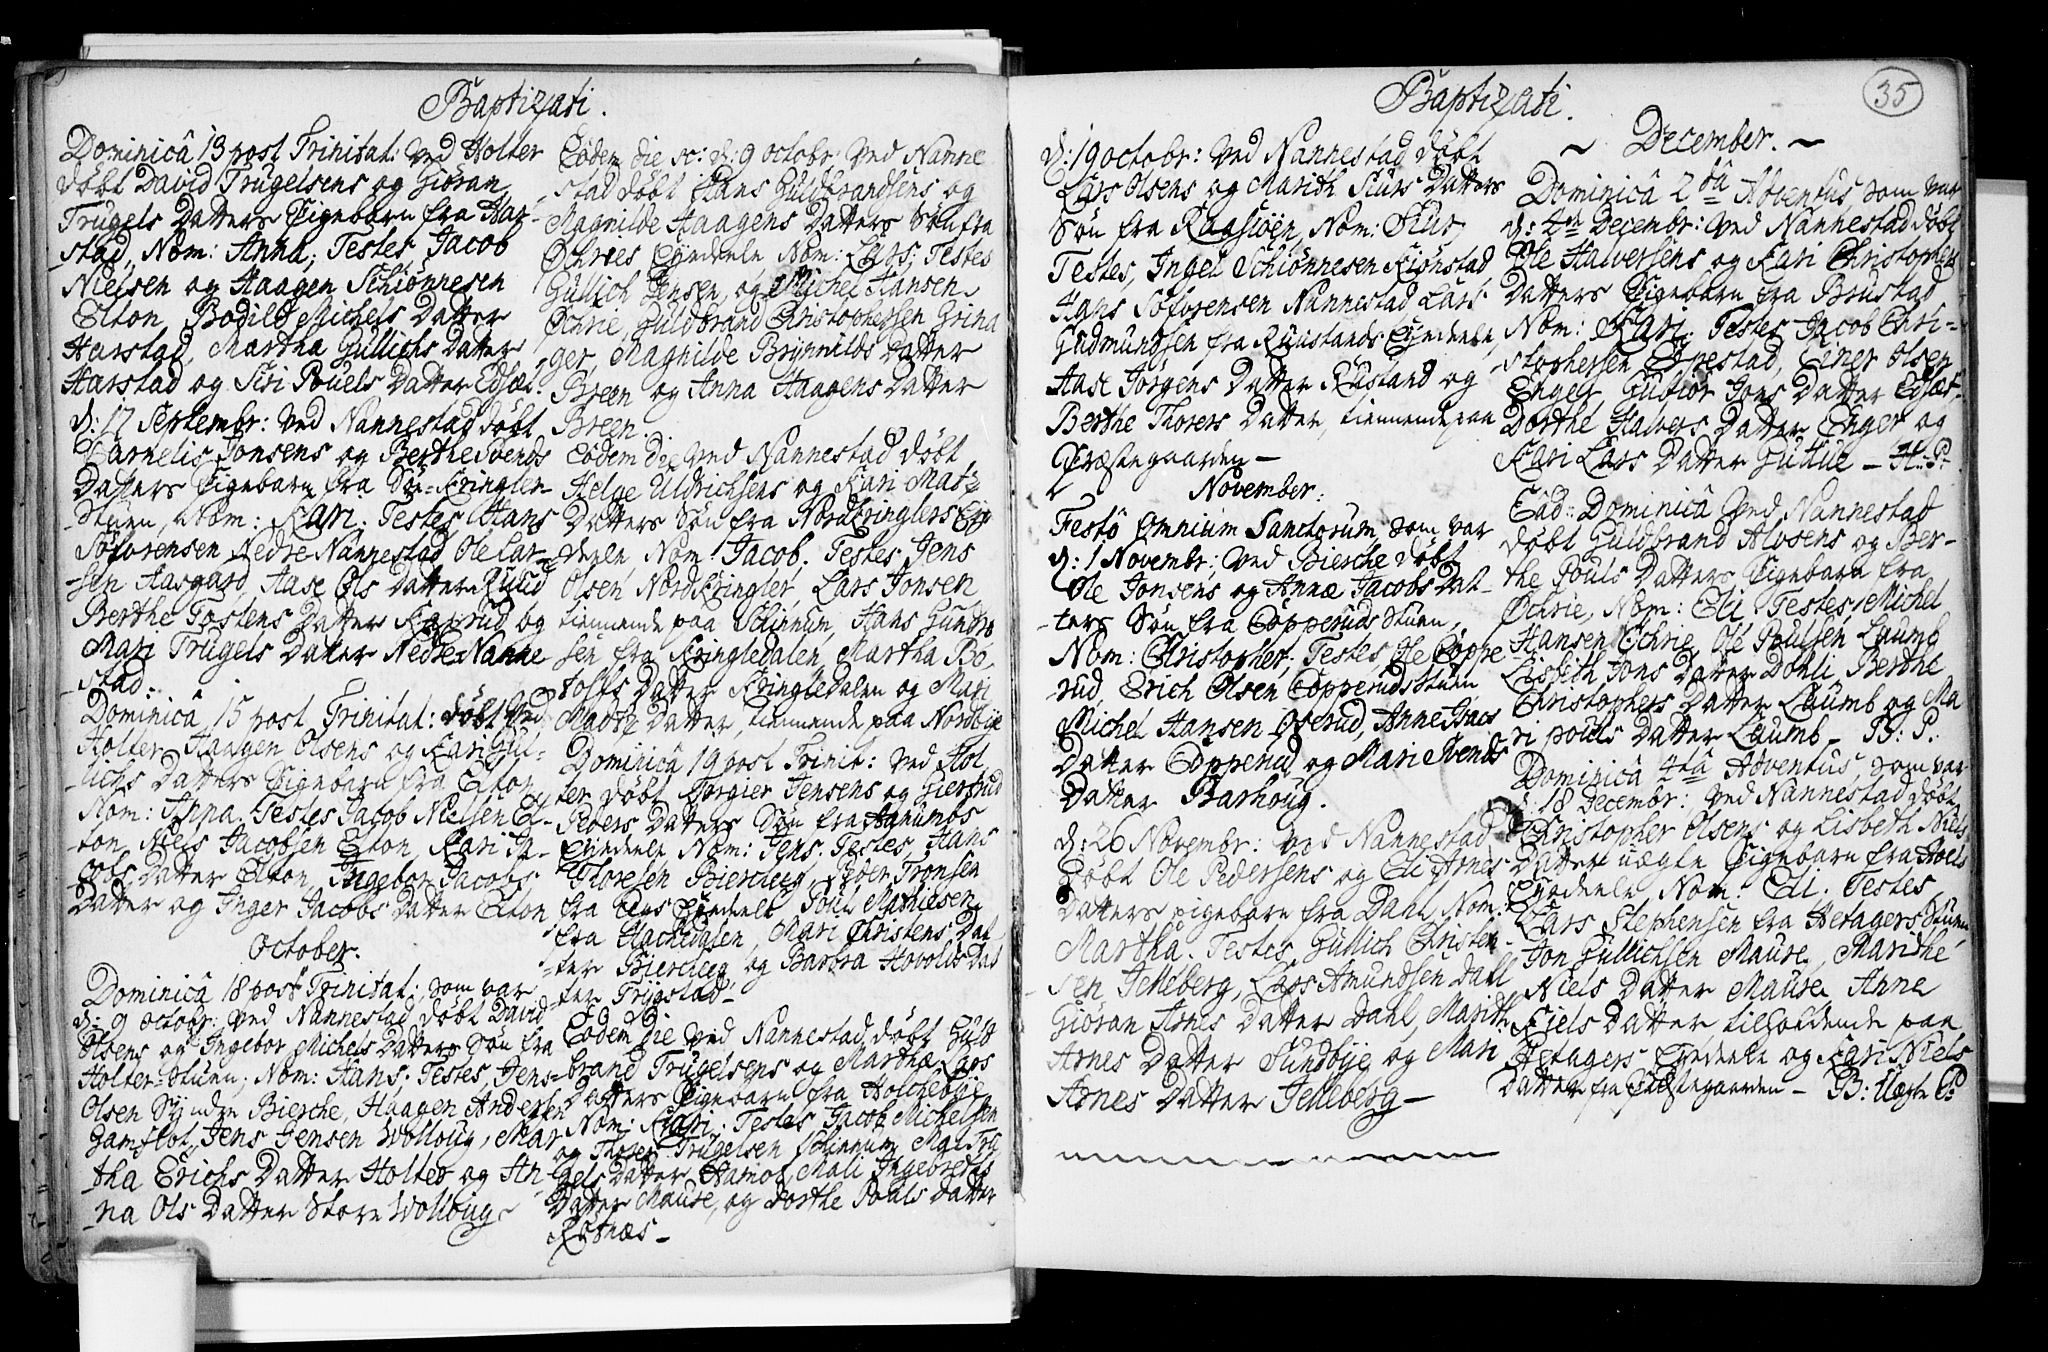 Baptizati.
Dominicâ 13 post Trinitat: ved Holter
döbt David Trugelsens og Giöran
Trugels Datters Pigebarn fra Har-
stad, Nom: Anna; Testes, Jacob
Nielsen og Haagen Schiönnesen
Elton, Bodild Michels Datter
Harstad, Martha Gullichs Datter
Harstad og Siri Pouels Datter
d: 17 Septembr: ved Nannestad döbt
Carnelis Jonsens og Berthe Svends
Datters Pigebarn fra Kringler-
Stuen, Nom: Kari. Testes Hans
Söforensen Nedre Nannestad Ole Lar-
sen Aasgard, Aase Ols Datter
Berthe Tostens Datter og
Mari Trugels Datter Nedre Nanne
stad.
Dominicâ 15 post Trinitat: döbt ved
Holter Haagen Olsens og Kari Gul-
lichs Datters Pigebarn fra Elton
Nom: Anna. Testes Jacob Nielsen El-
ton, Niels Jacobsen Elton, Kari Ja-
cobs Datter Elton, Ingebor Jacobs
Datter og Inger Jacobs Datter Elton
October.
Dominicâ 18 post Trinitat: som var
d: 9 octobr: ved Nannestad döbt David
Olsens og Ingebor Michels Datters Sön fra
Holter-Stuen; Nom: Hans. Testes, Jens
Olsen Syndre Bierche, Haagen Andersen
Gamflot, Jens Jensen Wolloug, Mar
tha Erichs Datter Holter og An-
na Ols Datter Store Wolloug
Eodem die sc: d: 9 octobr: ved Nanne
stad döbt Hans Guldbrandsens og
Magnilde Haagens Datters Sön fra
Öchries Eyedeele Nom: Lars; Testes
Gullich Jensen, og Michel Hansen
Öchrie, Guldbrand Christophersen Grina
ger, Magnilde Brynnilds Datter
Breen og Anna Haagens Datter
Breen.
Eodem die ved Nannestad döbt
Helge Uldrichsens og Kari Matz
Datters Sön fra Nordkringlers Eye
deele, Nom: Jacob. Testes Jens
Olsen Nordkringler, Lars Jonsen
tiennende paa Schinnum, Hans Gundro
sen fra Kringledalen, Martha Bo-
tolfs Datter Kringledalen og Mari
Madtz Datter, tiennende paa Nordbye
Dominicâ 19 post Trinit: ved Hol
ter döbt Torgier Jensens og Giertrud
Peders Datters Sön fra Amunds
Eyedeele Nom: Jens. Testes, Hans
Thoresen Biercheeg, Peder Tronsen
fra Eyedeele Poul Mathiesen
fra Hachedalen, Mari Christens Dat
ter Biercheeg, og Barbra Hovolds Dat
ter Trygstad-
Eodem Die ved Nannestad döbt Guld
brand Trugelsens og Martha Lars
Datters Pigebarn fra Holchebye
Nom: Kari. Testes Jacob Michelsen
og Thores Trugelsen Schinnum Mari Tru
gels Datter Mali Ingebreths
Datter Mause, og Dorthe Pouls Datter
Kötnæs-
35
Baptizati.
d: 19 octobr: ved Nannestad döbt
Lars Olsens og Marith Siurs Datters
Sön fra Raasiöen, Nom: Siur
Testes, Ingel Schiönnesen Kiönstad
Hans Söforensen Nannestad Lars
Gudmundsen fra Ruustands Eyedeele,
Aase Jörgens Datter Rustand og
Berthe Thorers Datter, tiennende paa
Præstegaarden-
November:
Festo Omnium Sanctorum som var
d: 1 Novembr: ved Bierche döbt
Ole Jonsens og Annæ Jacobs Dat-
ters Sön fra Copperuds Stuen,
Nom: Christopher. Testes, Ole Coppe
rud, Erich Olsen Copperuds Stuen
Michel Hansen Overud, Anne Isacs
Datter Copperud og Mari Svends
Datter Barhoug.
d: 26 Novembr: ved Nannestad
Döbt Ole Pedersens og Eli Arnes
Datters pigebarn fra Dahl, Nom:
Martha. Testes, Gullich Christen-
sen Jelleberg, Lars Amundsen Dahl
Giöran Arnes Datter Dahl, Marith
Arnes Datter Sundbye og Mari
Arnes Datter Jelleberg-
~ December. ~
Dominicâ 2da Adventus, som var
d: 4de Decembr: ved Nannestad döbt
Ole Halversens og Kari Christophers
Datters Pigebarn fra Brustad
Nom: Kari. Testes Jacob Chri-
stophersen Einer Olsen
Enger, Gubior Jons Datter
Dorthe Halvers Datter Enger og
Kari Lars Datter - H: P:
Ead: Dominicâ ved Nannestad
döbt Guldbrand Alvsens og Ber-
the Pouls Datters Pigebarn fra
Öchrie, Nom: Eli. Testes, Michel
Hansen Öchrie, Ole Poulsen Laumb
Lisbeth Jons Datter Dohli, Berthe
Christophers Datter Laumb og Ma
ri pouls Datter Laumb - B: P:
Dominicâ 4ta Adventus, som var
d: 18 Decembr: ved Nannestad döbt
Christopher Olsens og Lisbeth Niels
Datters uægte Pigebarn fra
Eyedeele Nom: Eli. Testes
Lars Stephensen fra Hetagers Stuen
Jon Gullichsen Mause, Marithe
Niels Datter Mause, Anne
Kiels Datter, tilholdende paa
Hetagers Eyedeele og Kari Niels
Datter fra Præstegaarden - B: Uægte P: